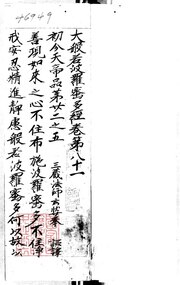 46949
大般若波羅蜜多經卷第八十一
初分天帝品第廿二之五
三藏法師玄奘奉 詔譯
善現如來之心不住布施波羅蜜多不住淨
戒安忍精進靜慮般若波羅蜜多何以故以